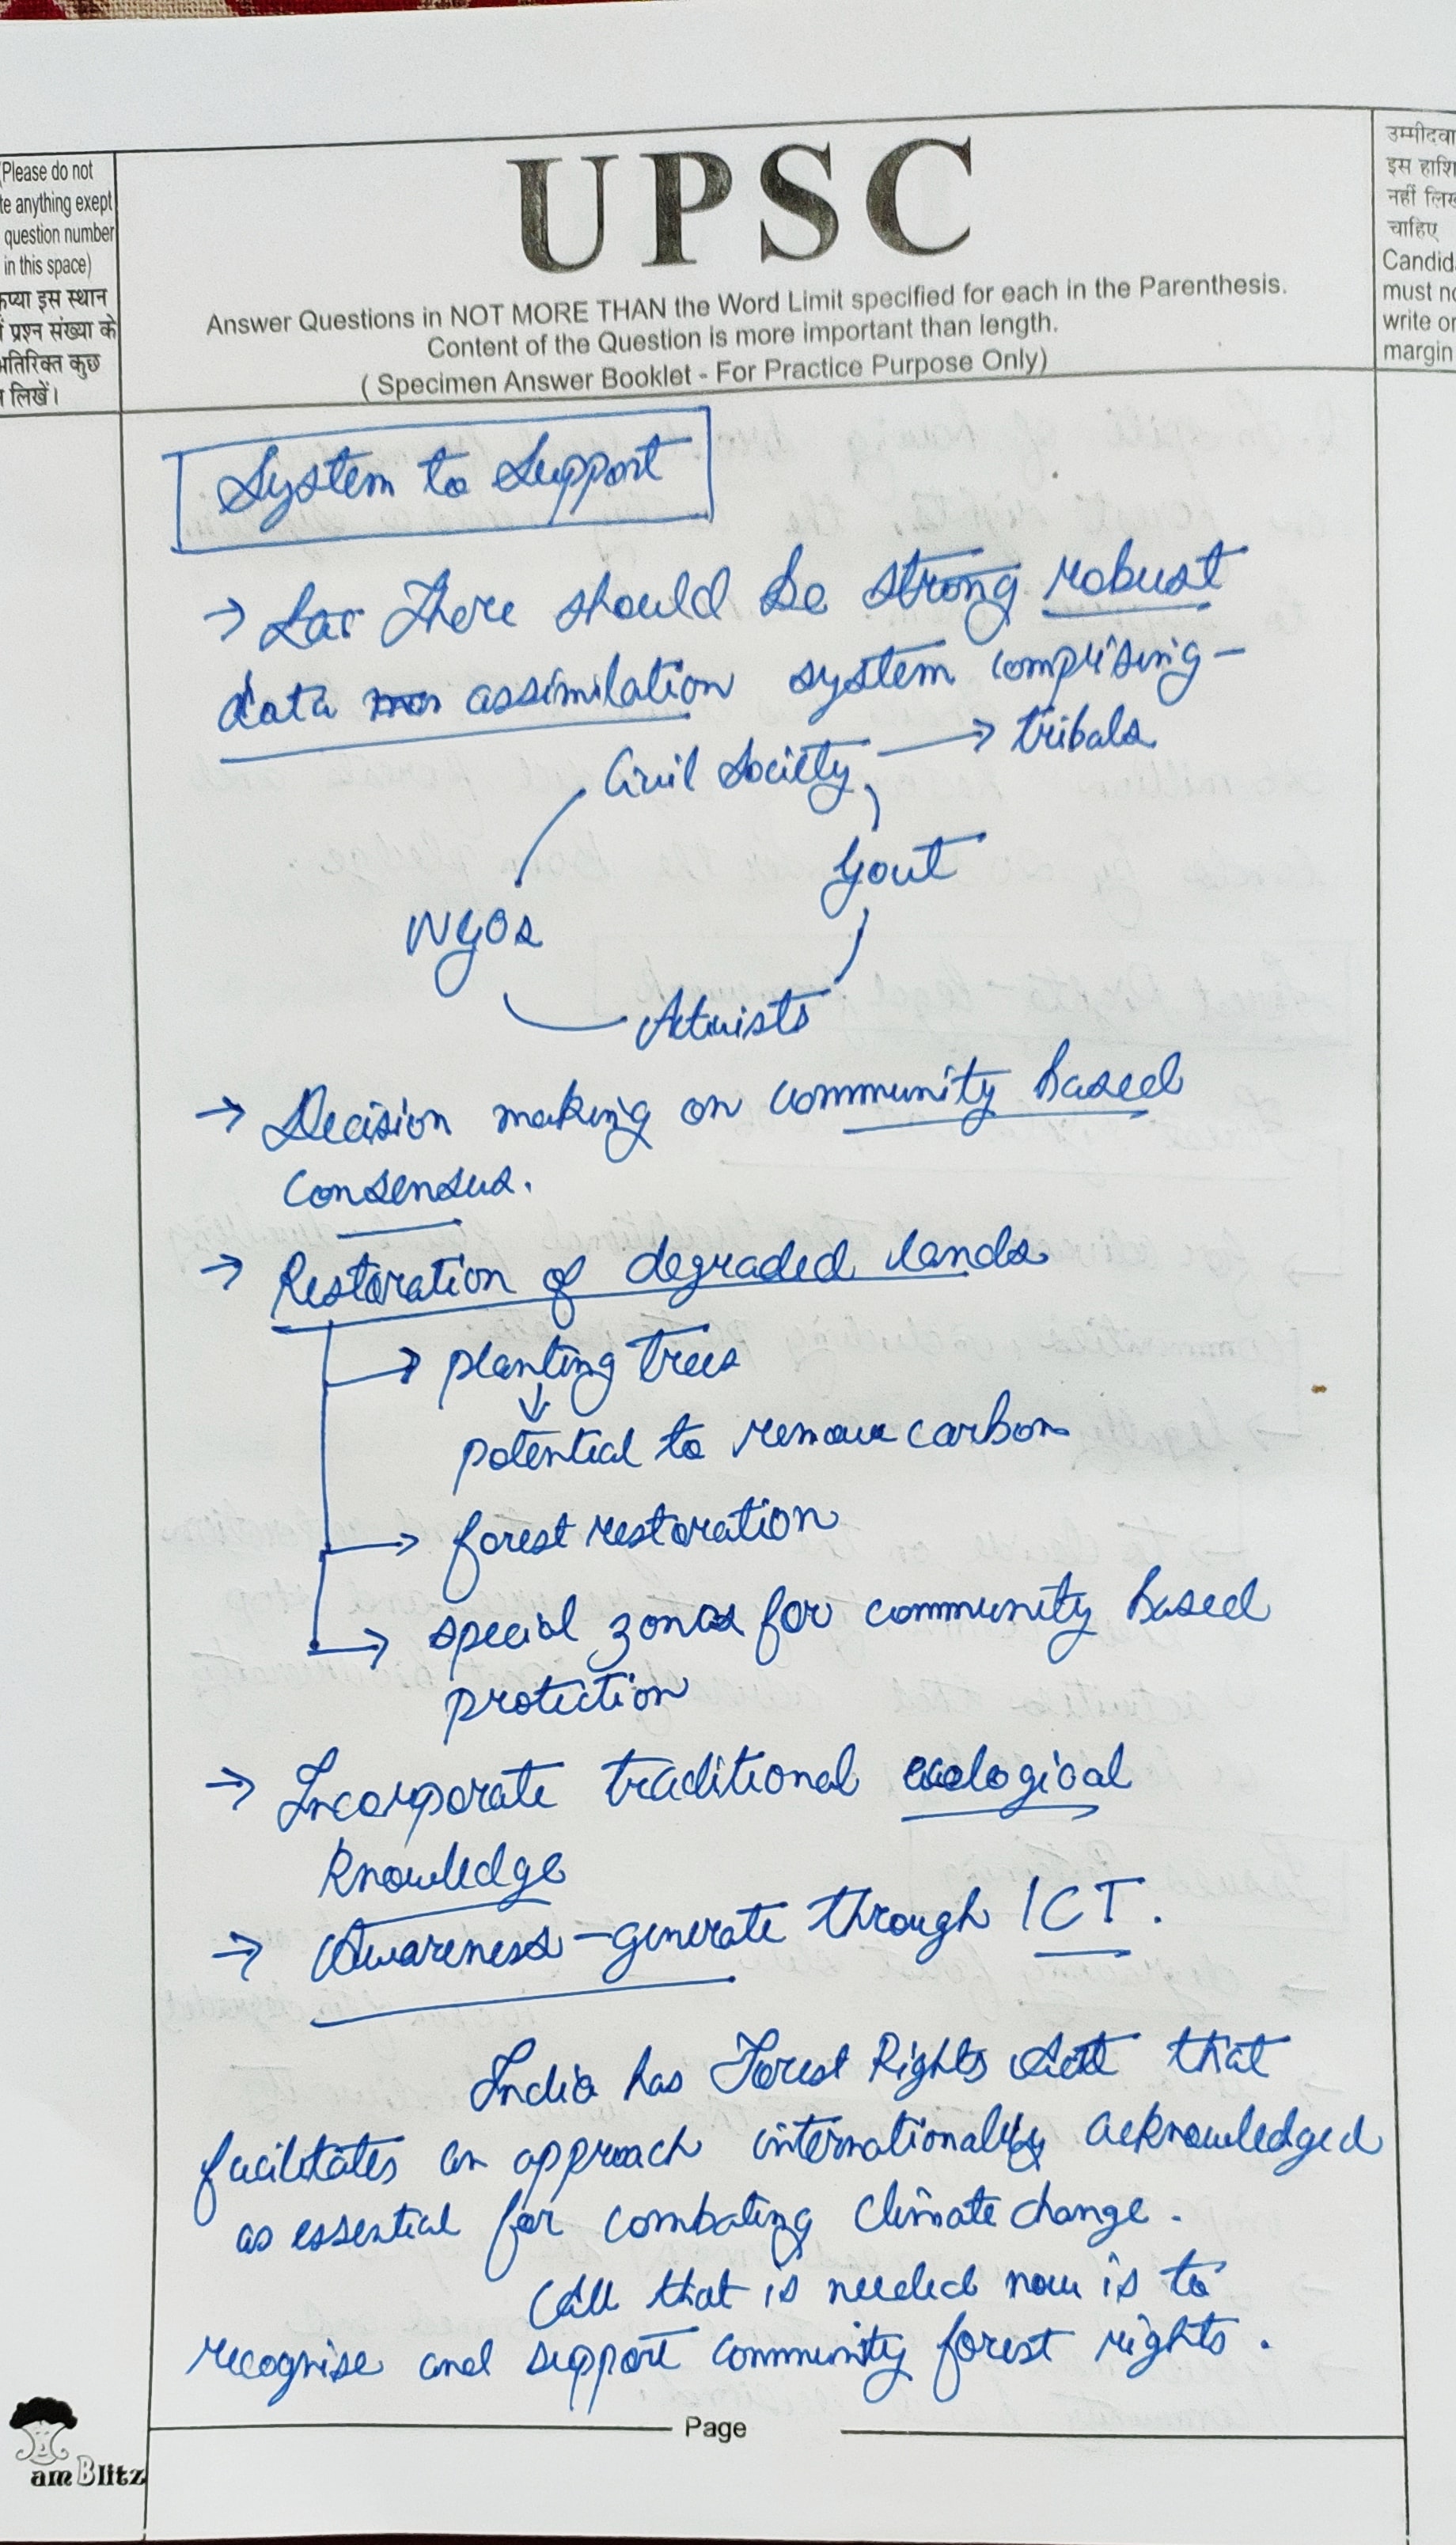 (Please do not
te anything exept
question number
in this space)
कृप्या इस स्थान
में प्रश्न संख्या के
अतिरिक्त कुछ
न लिखें।
UPSC
Answer Questions in NOT MORE THAN the Word Limit specified for each in the Parenthesis.
Content of the Question is more important than length.
( Specimen Answer Booklet - For Practice Purpose Only)
उम्मीदवा
इस हाशि
नहीं लिख
चाहिए
Candid
must no
write on
margin
System to Support
→ There should be strong robust
data assimilation system comprising -
Civil Society → tribals
Govt
NGOs
Activists
→ Decision making on community based
consensus.
→ Restoration of degraded lands
→ planting trees
↓
potential to remove carbon
→ forest restoration
→ special zones for community based
protection
→ Incorporate traditional ecological
knowledge
→ Awareness - generate through ICT.
India has Forest Rights Act that
facilitates an approach internationally acknowledged
as essential for combating climate change.
All that is needed now is to
recognise and support community forest rights.
Page
am Blitz